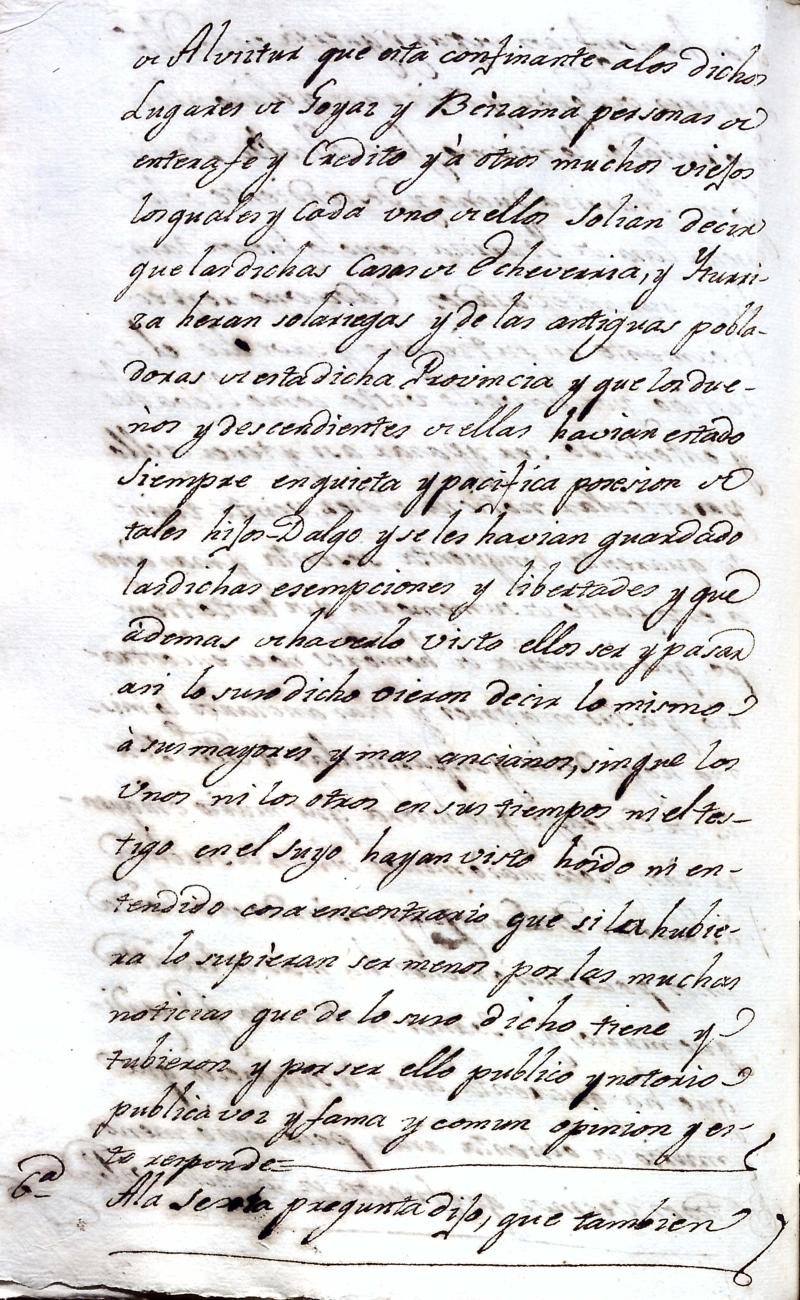 de Alvistur que esta confinante a los dichos
Lugares de Goyaz y Beizama personas de
entera fe y Credito y à otros muchos viejos
los quales y cada uno de ellos solian decir
que las dichas Casas de Echeverria, y Yturri-
za heran solariegas y de las antiguas pobla-
doras de esta dicha Provincia y que los due-
ños y descendientes de ellas havian estado
siempre en quieta y pacifica posesion de
tales hijos-Dalgo y se les havian guardado
las dichas esempciones y libertades y que
àdemas de haverlo visto ellos ser y pasar
asi lo suso dicho oieron decir lo mismo
à sus mayores y mas ancianos, sin que los
Unos ni los otros en sus tiempos ni el tes-
tigo en el suyo hayan visto hoido ni en-
tendido cosa en contrario que si la hubie-
ra lo supieran ser menos por las muchas
noticias que de lo suso dicho tiene y
tubieron y por ser ello publico y notorio
publica voz y fama y comun opinion y es-
to responde=
6ª A la sexta pregunta dijo, que tambien